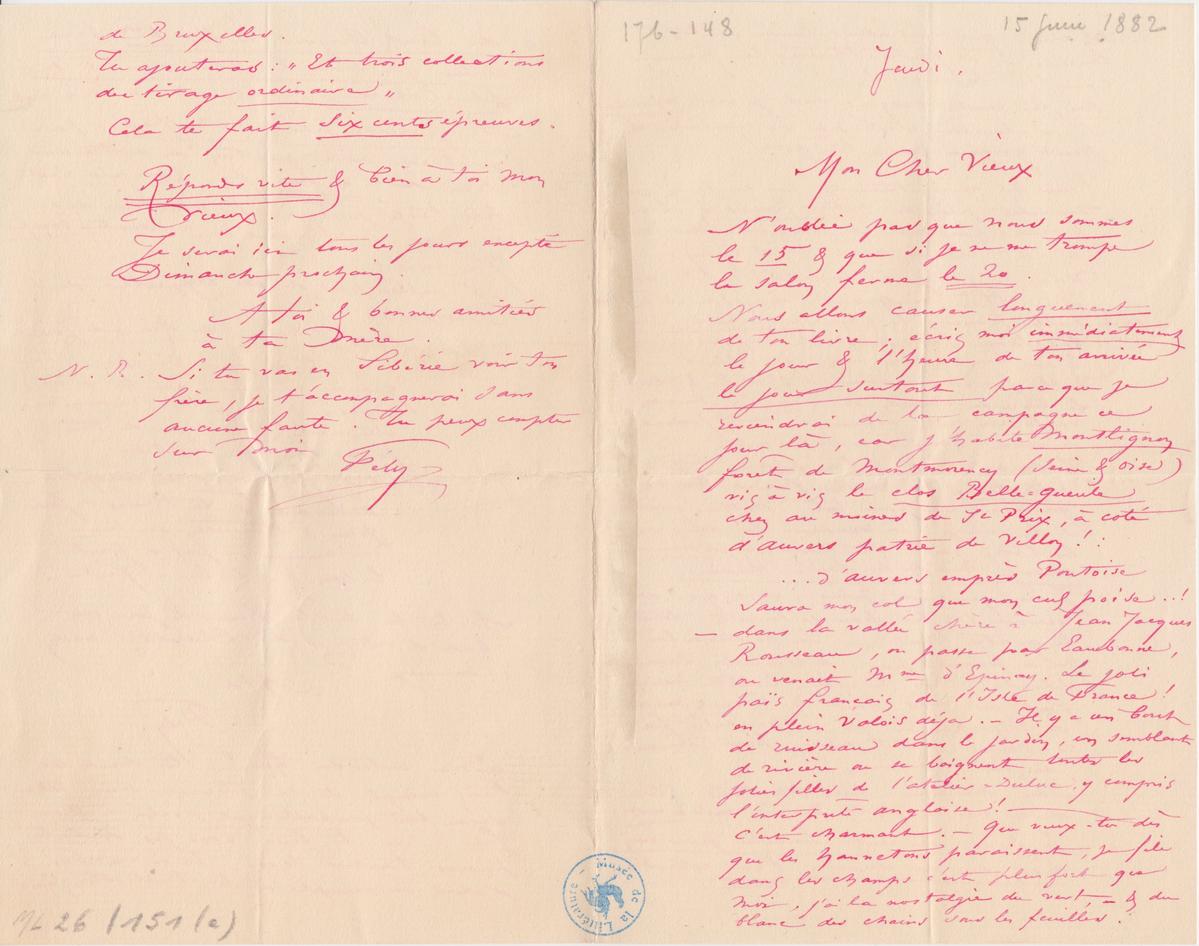 de Bruxelles.
Tu ajouteras : „ Et trois collections
du tirage ordinaire „
Cela te fait six cents épreuves.
Réponds vite & bien à toi mon
vieux.
Je serai ici tous les jours excepté
Dimanche prochain.
A toi & bonnes amitiés
à ta Mère.
N. B. Si tu vas en Sibérie voir ton
frère, je t'accompagnerai sans
aucune faute. Tu peux compter
sur moi
Fély
176-148
15 Juin 1882
Jeudi.
Mon Cher Vieux
N'oublie pas que nous sommes
le 15 & que si je ne me trompe
le salon ferme le 20.
Nous allons causer longuement
de ton livre ; écris moi immédiatement
le jour & l'heure de ton arrivée
le jour surtout parce que je
reviendrai de la campagne ce
jour là, car j'habite Montlignon
forêt de Montmorency (Seine & Oise)
vis à vis le clos Belle-gueule
chez au moines de St Prix, à coté
d'auvers patrie de Villon ! :
... d'auvers emprès Pontoise
Saura mon col que mon cul poise..!
— dans la vallée chère à Jean Jacques
Rousseau, on passe par Eaubonne,
ou venait Mme d'Epinay. Le joli
païs français de l'Isle de France !
en plein Valois déja. — Il y a un bout
de ruisseau dans le jardin, un semblant
de rivière ou se baignent toutes les
jolies filles de l'atelier-Duluc, y compris
l'interprète anglaise ! —
C'est charmant. — Que veux-tu dès
que les hannetons paraissent, je file
dans les champs c'est plus fort que
moi, j'ai la nostalgie du vert, — & du
blanc des chairs sous les feuilles.
ML 26 /151/(a)
Musée de la Littérature